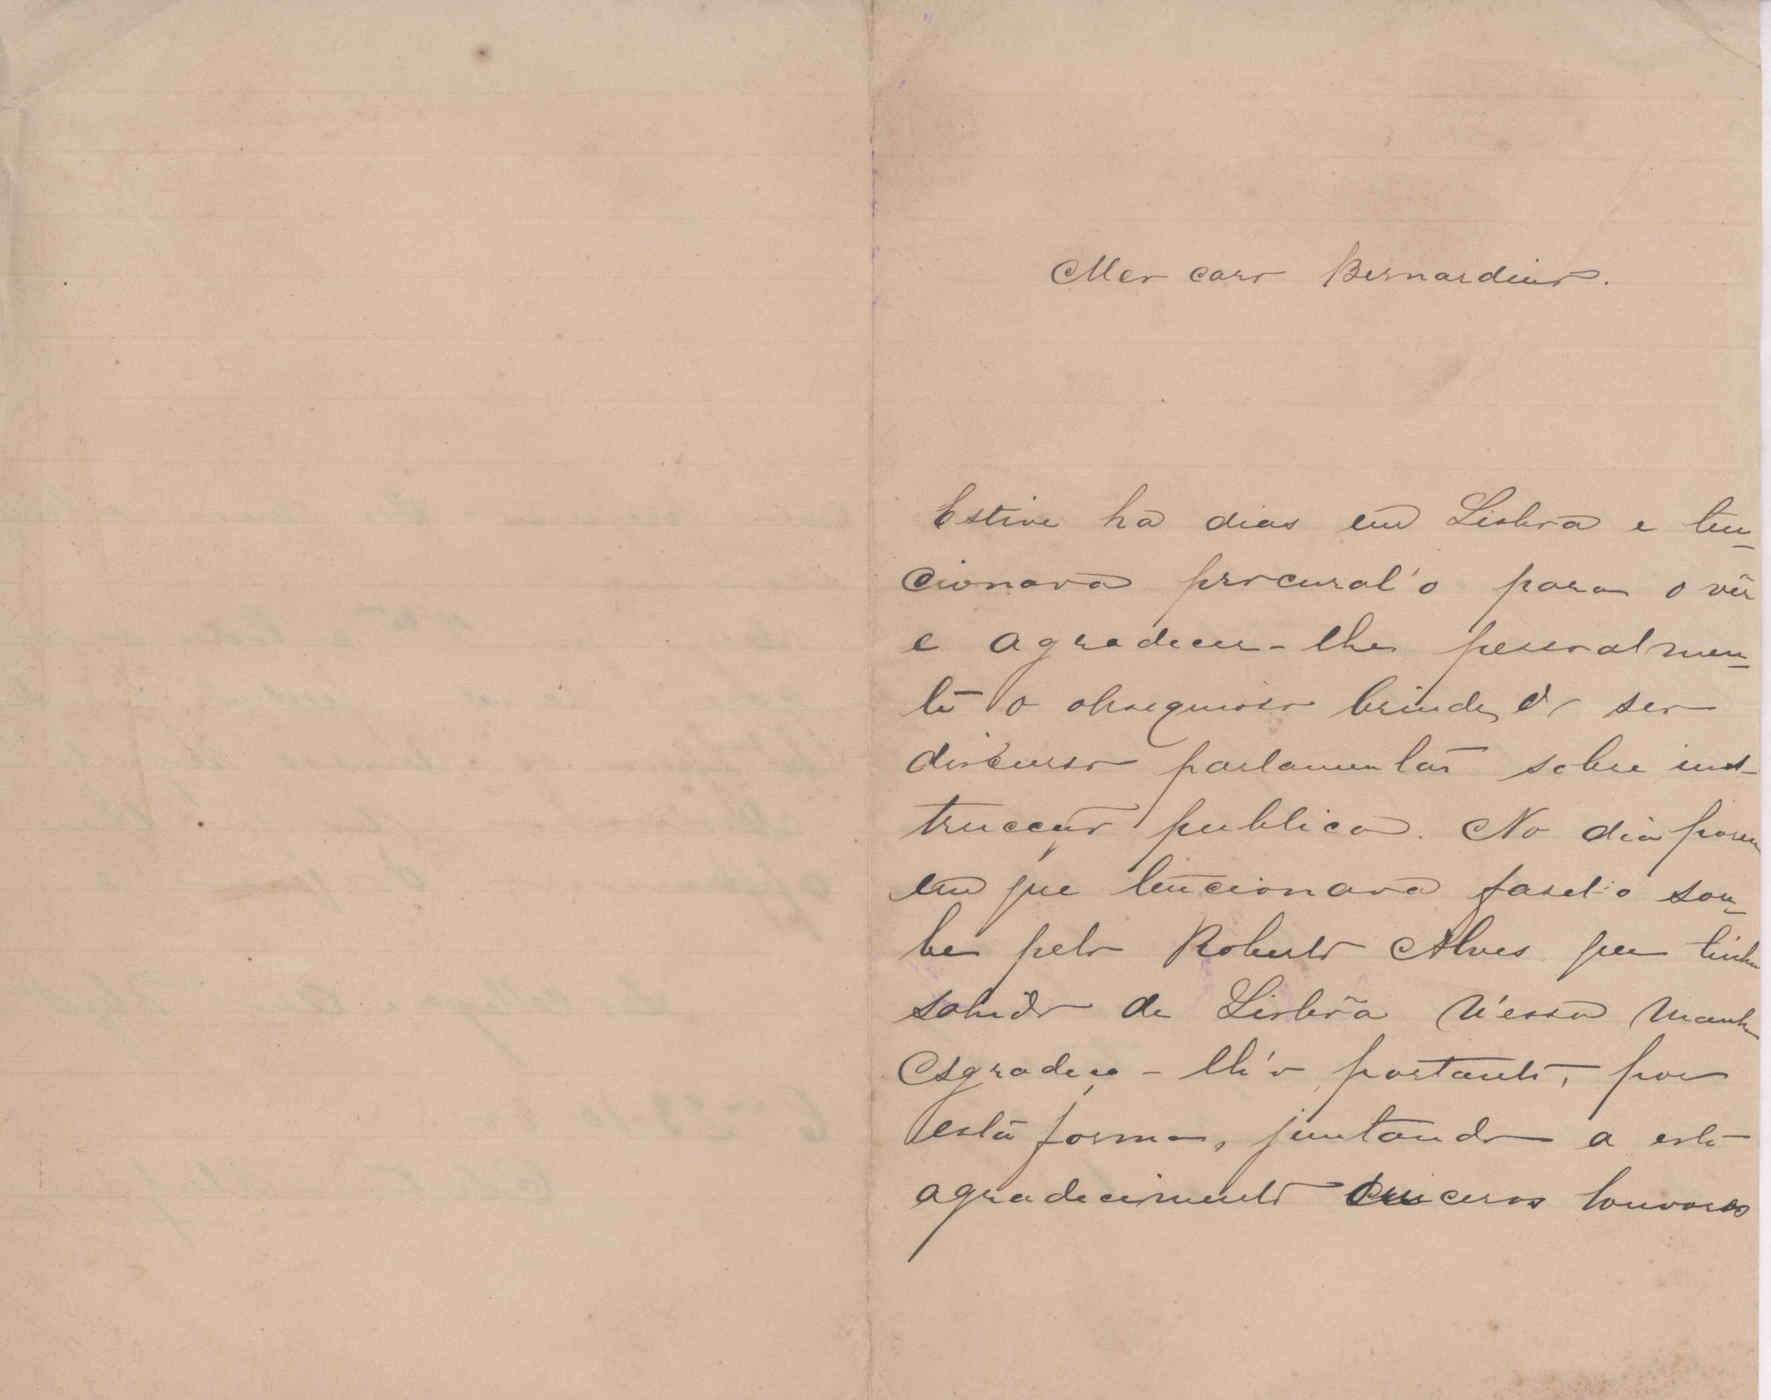 Meu caro Bernardino.
Estive ha dias em Lisboa e ten-
cionava procural'o para o vêr
e agradecer-lhe pessoalmen-
te o obsequioso brinde do seu
discurso parlamentar sobre ins-
trucção publica. No dia porem
em que tencionava fasel-o sou-
be pelo Roberto Alves que tinha
sahido de Lisboa n'essa manhã
Agradeço-lh'o portanto, por
esta forma, juntando a este
agradecimento sinceros louvores